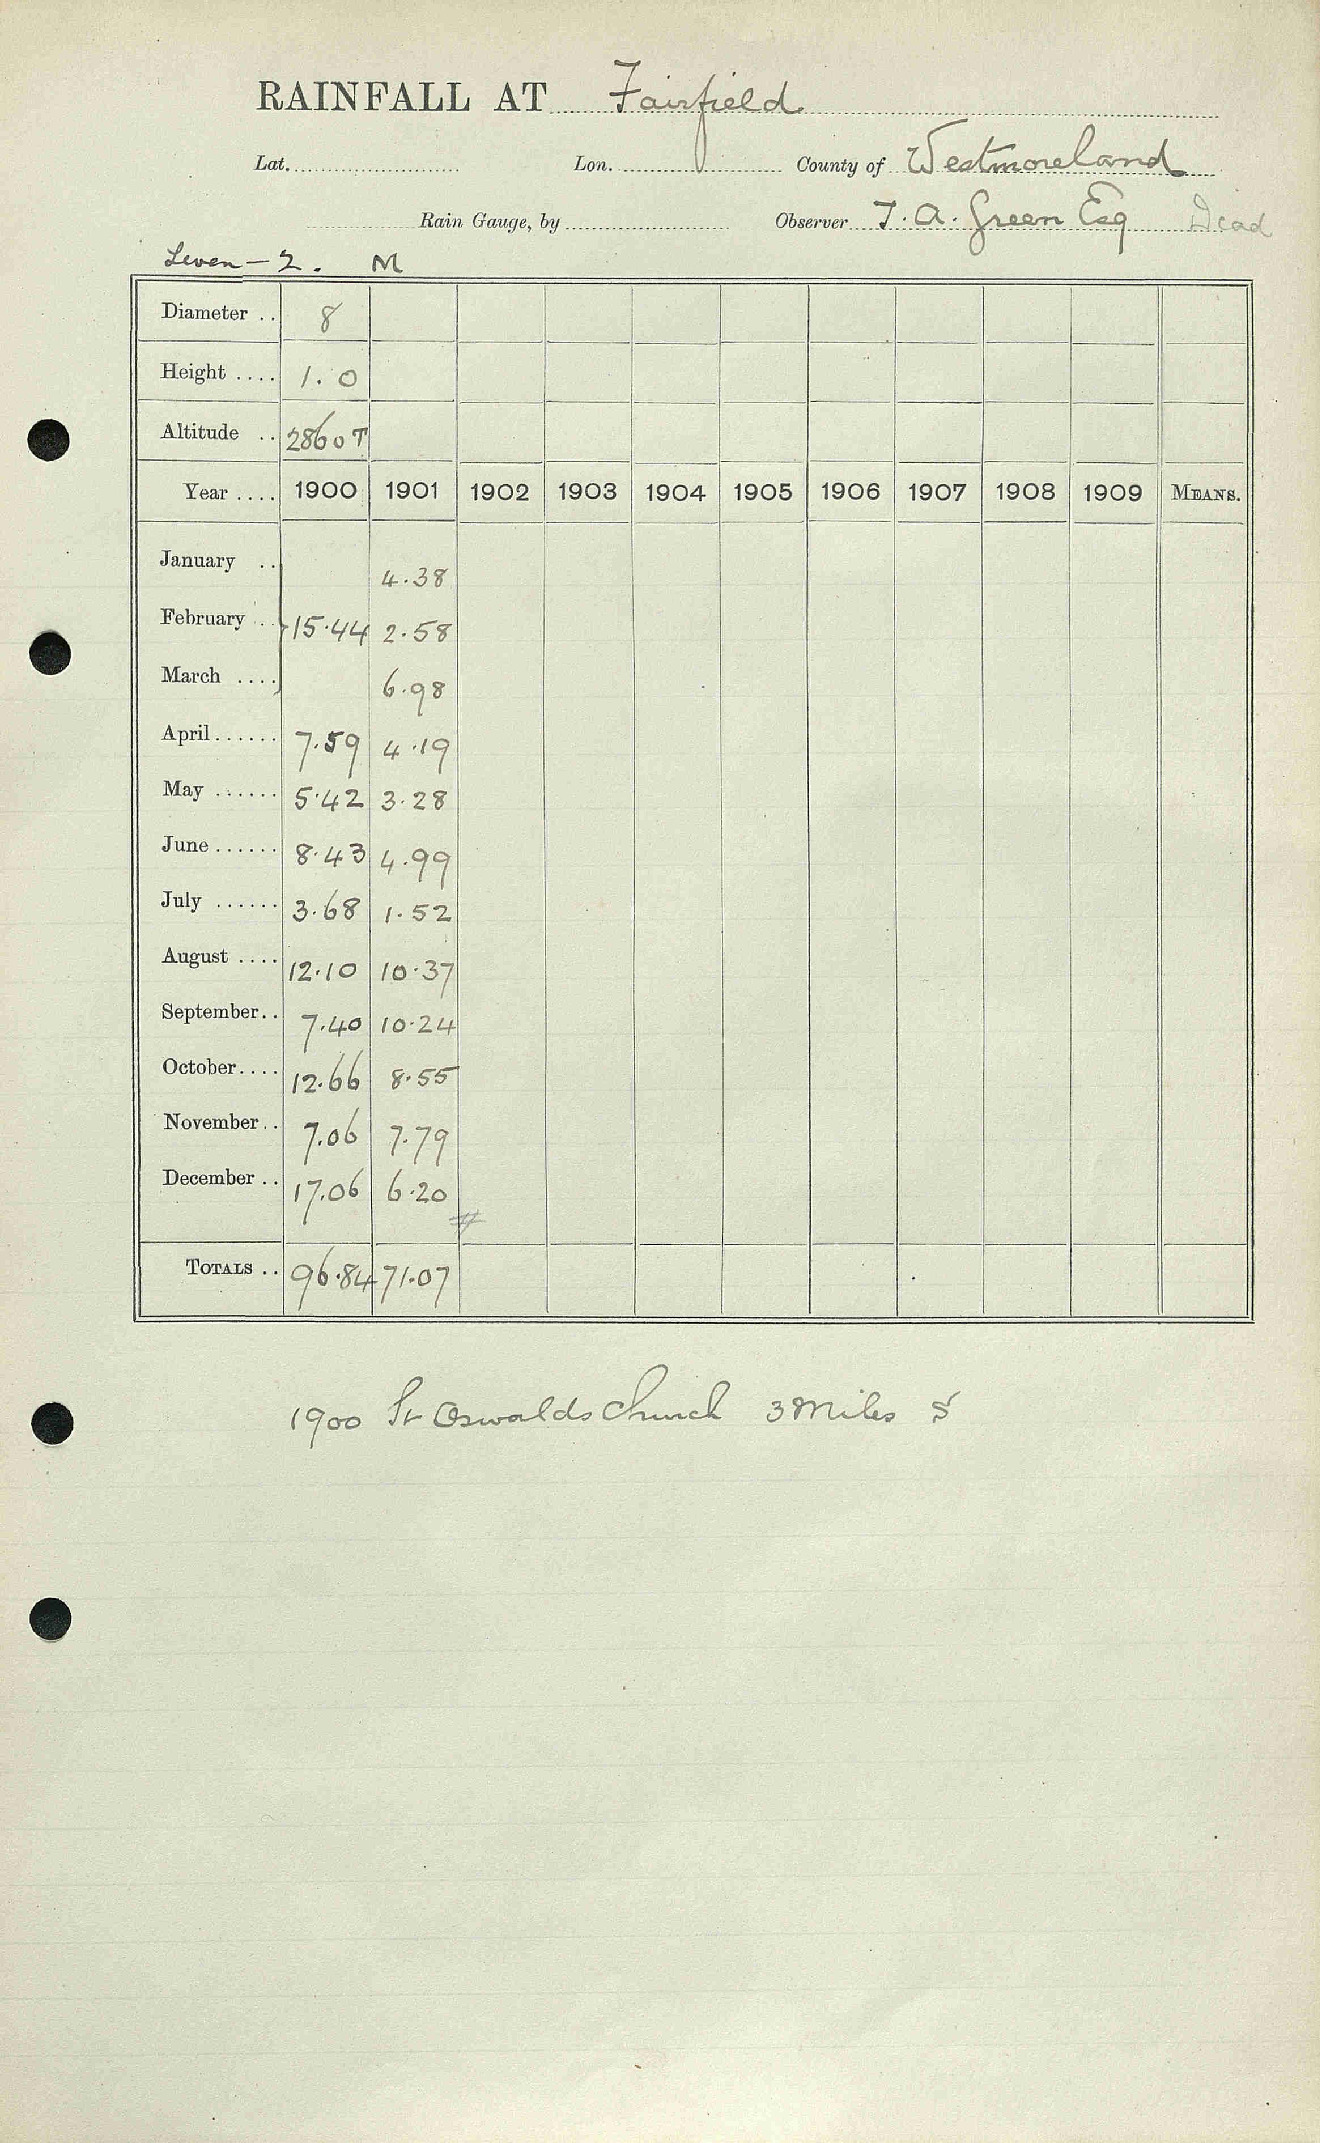 RAINFALL AT Fairfield
Lat. Lon. County of Westmoreland
Rain Gauge, by Observer T. A. Green Esq Dead
Leven - 2. M
Diameter .. 8
Height .... 1. 0
Altitude .. 2860 T
Year .... 1900 1901 1902 1903 1904 1905 1906 1907 1908 1909 MEANS.
January .. 4.38
February .. 15.44 2.58
March .... 6.98
April ...... 7.59 4.19
May ...... 5.42 3.28
June ...... 8.43 4.99
July ...... 3.68 1.52
August .... 12.10 10.37
September .. 7.40 10.24
October .... 12.66 8.55
November .. 7.06 7.79
December .. 17.06 6.20
#
TOTALS .. 96.84 71.07
1900 St Oswalds Church 3 Miles S